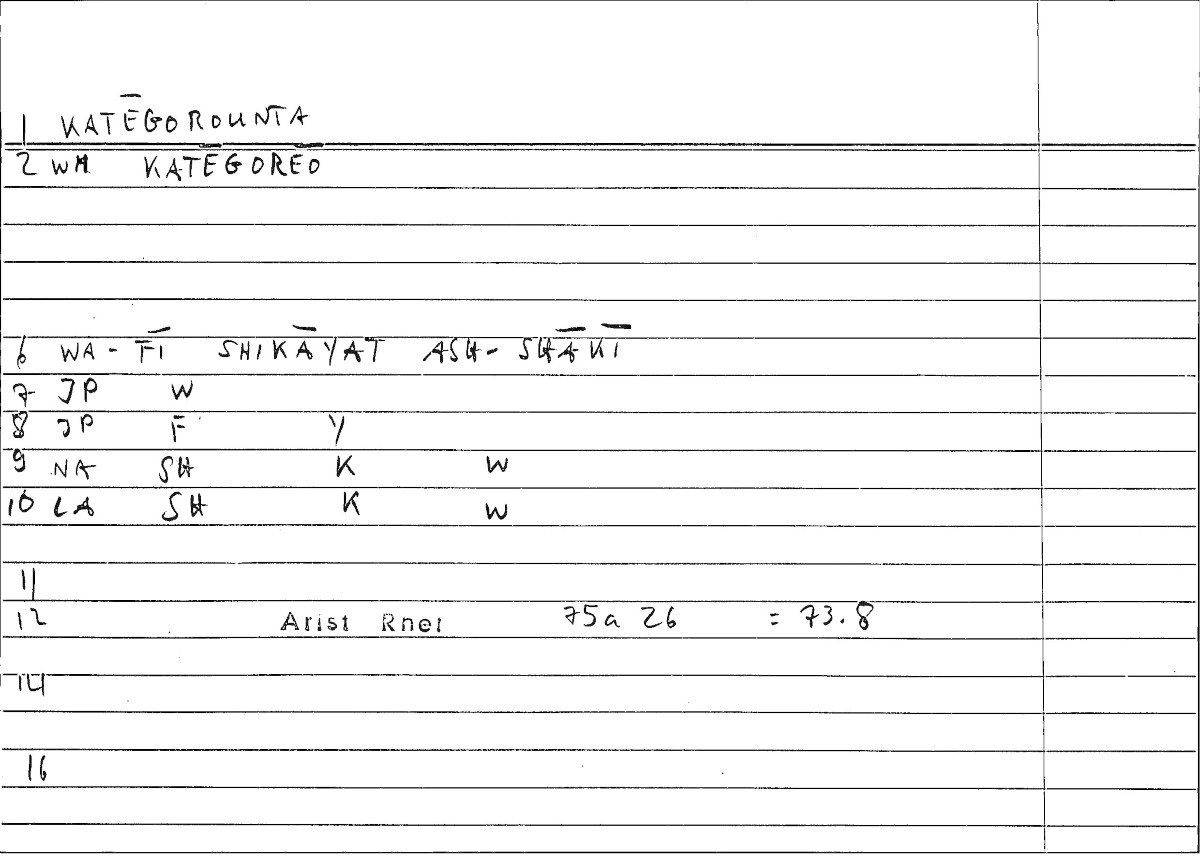 1 KATĒGOROUNTA
2 WM KATĒGOREŌ
6 WA - FĪ SHIKĀYAT ASH- SHĀKĪ
7 JP W
8 JP F Y
9 NA SH K W
10 LA SH K W
11
12 Arist Rhet 75a 26 = 73.8
14
16